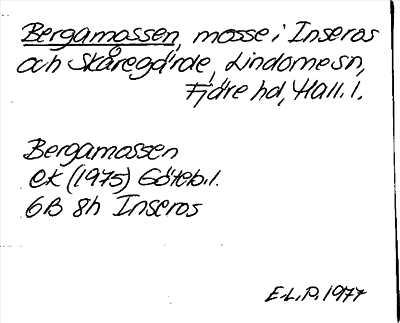 Bergamossen, mosse i Inseros
och Skåregärde, Lindome sn,
Fjäre hd, Hall. l.
Bergamossen
ek (1975) Göteb. l.
6B 8h Inseros
E.L.P. 1977